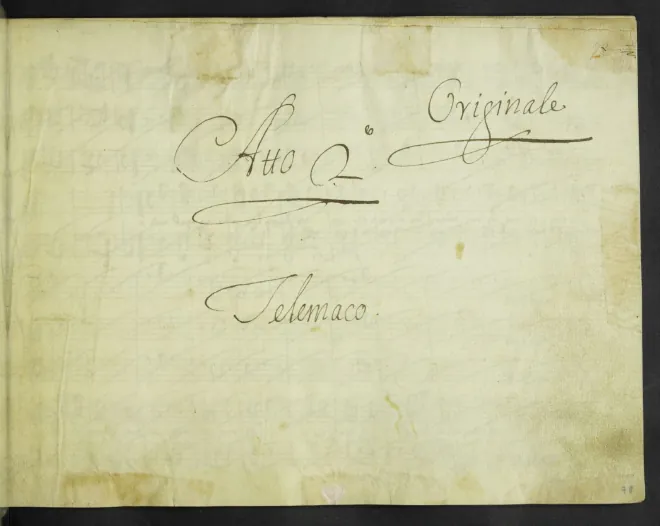 Originale
Atto 2º.
Telemaco.